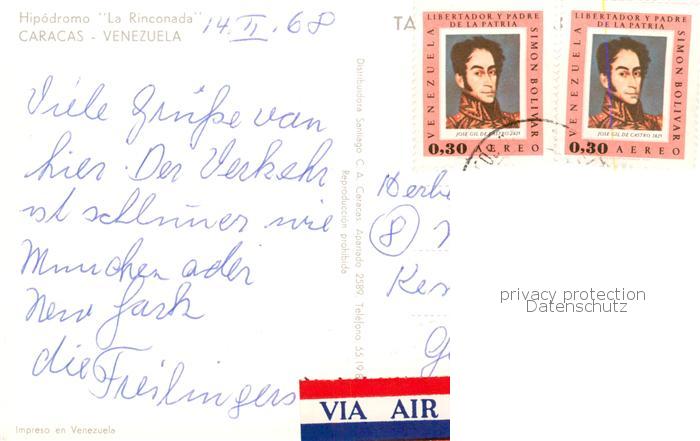 Hipódromo "La Rinconada"
CARACAS - VENEZUELA
14. II. 68
Viele Grüße van
hier. Der Verkehr
ist schlimer wie
Munchen oder
New Yark
die Freilingers
Impreso en Venezuela
Distribuidora Santiago C. A. Caracas. Apartado 2589. Teléfono 55 19 8
Reproducción prohibida
TA
VENEZUELA
LIBERTADOR Y PADRE
DE LA PATRIA
SIMON BOLIVAR
JOSE GIL DE CASTRO 1825
0,30 AEREO
VENEZUELA
LIBERTADOR Y PADRE
DE LA PATRIA
SIMON BOLIVAR
JOSE GIL DE CASTRO 1825
0,30 AEREO
8
privacy protection
Datenschutz
VIA AIR